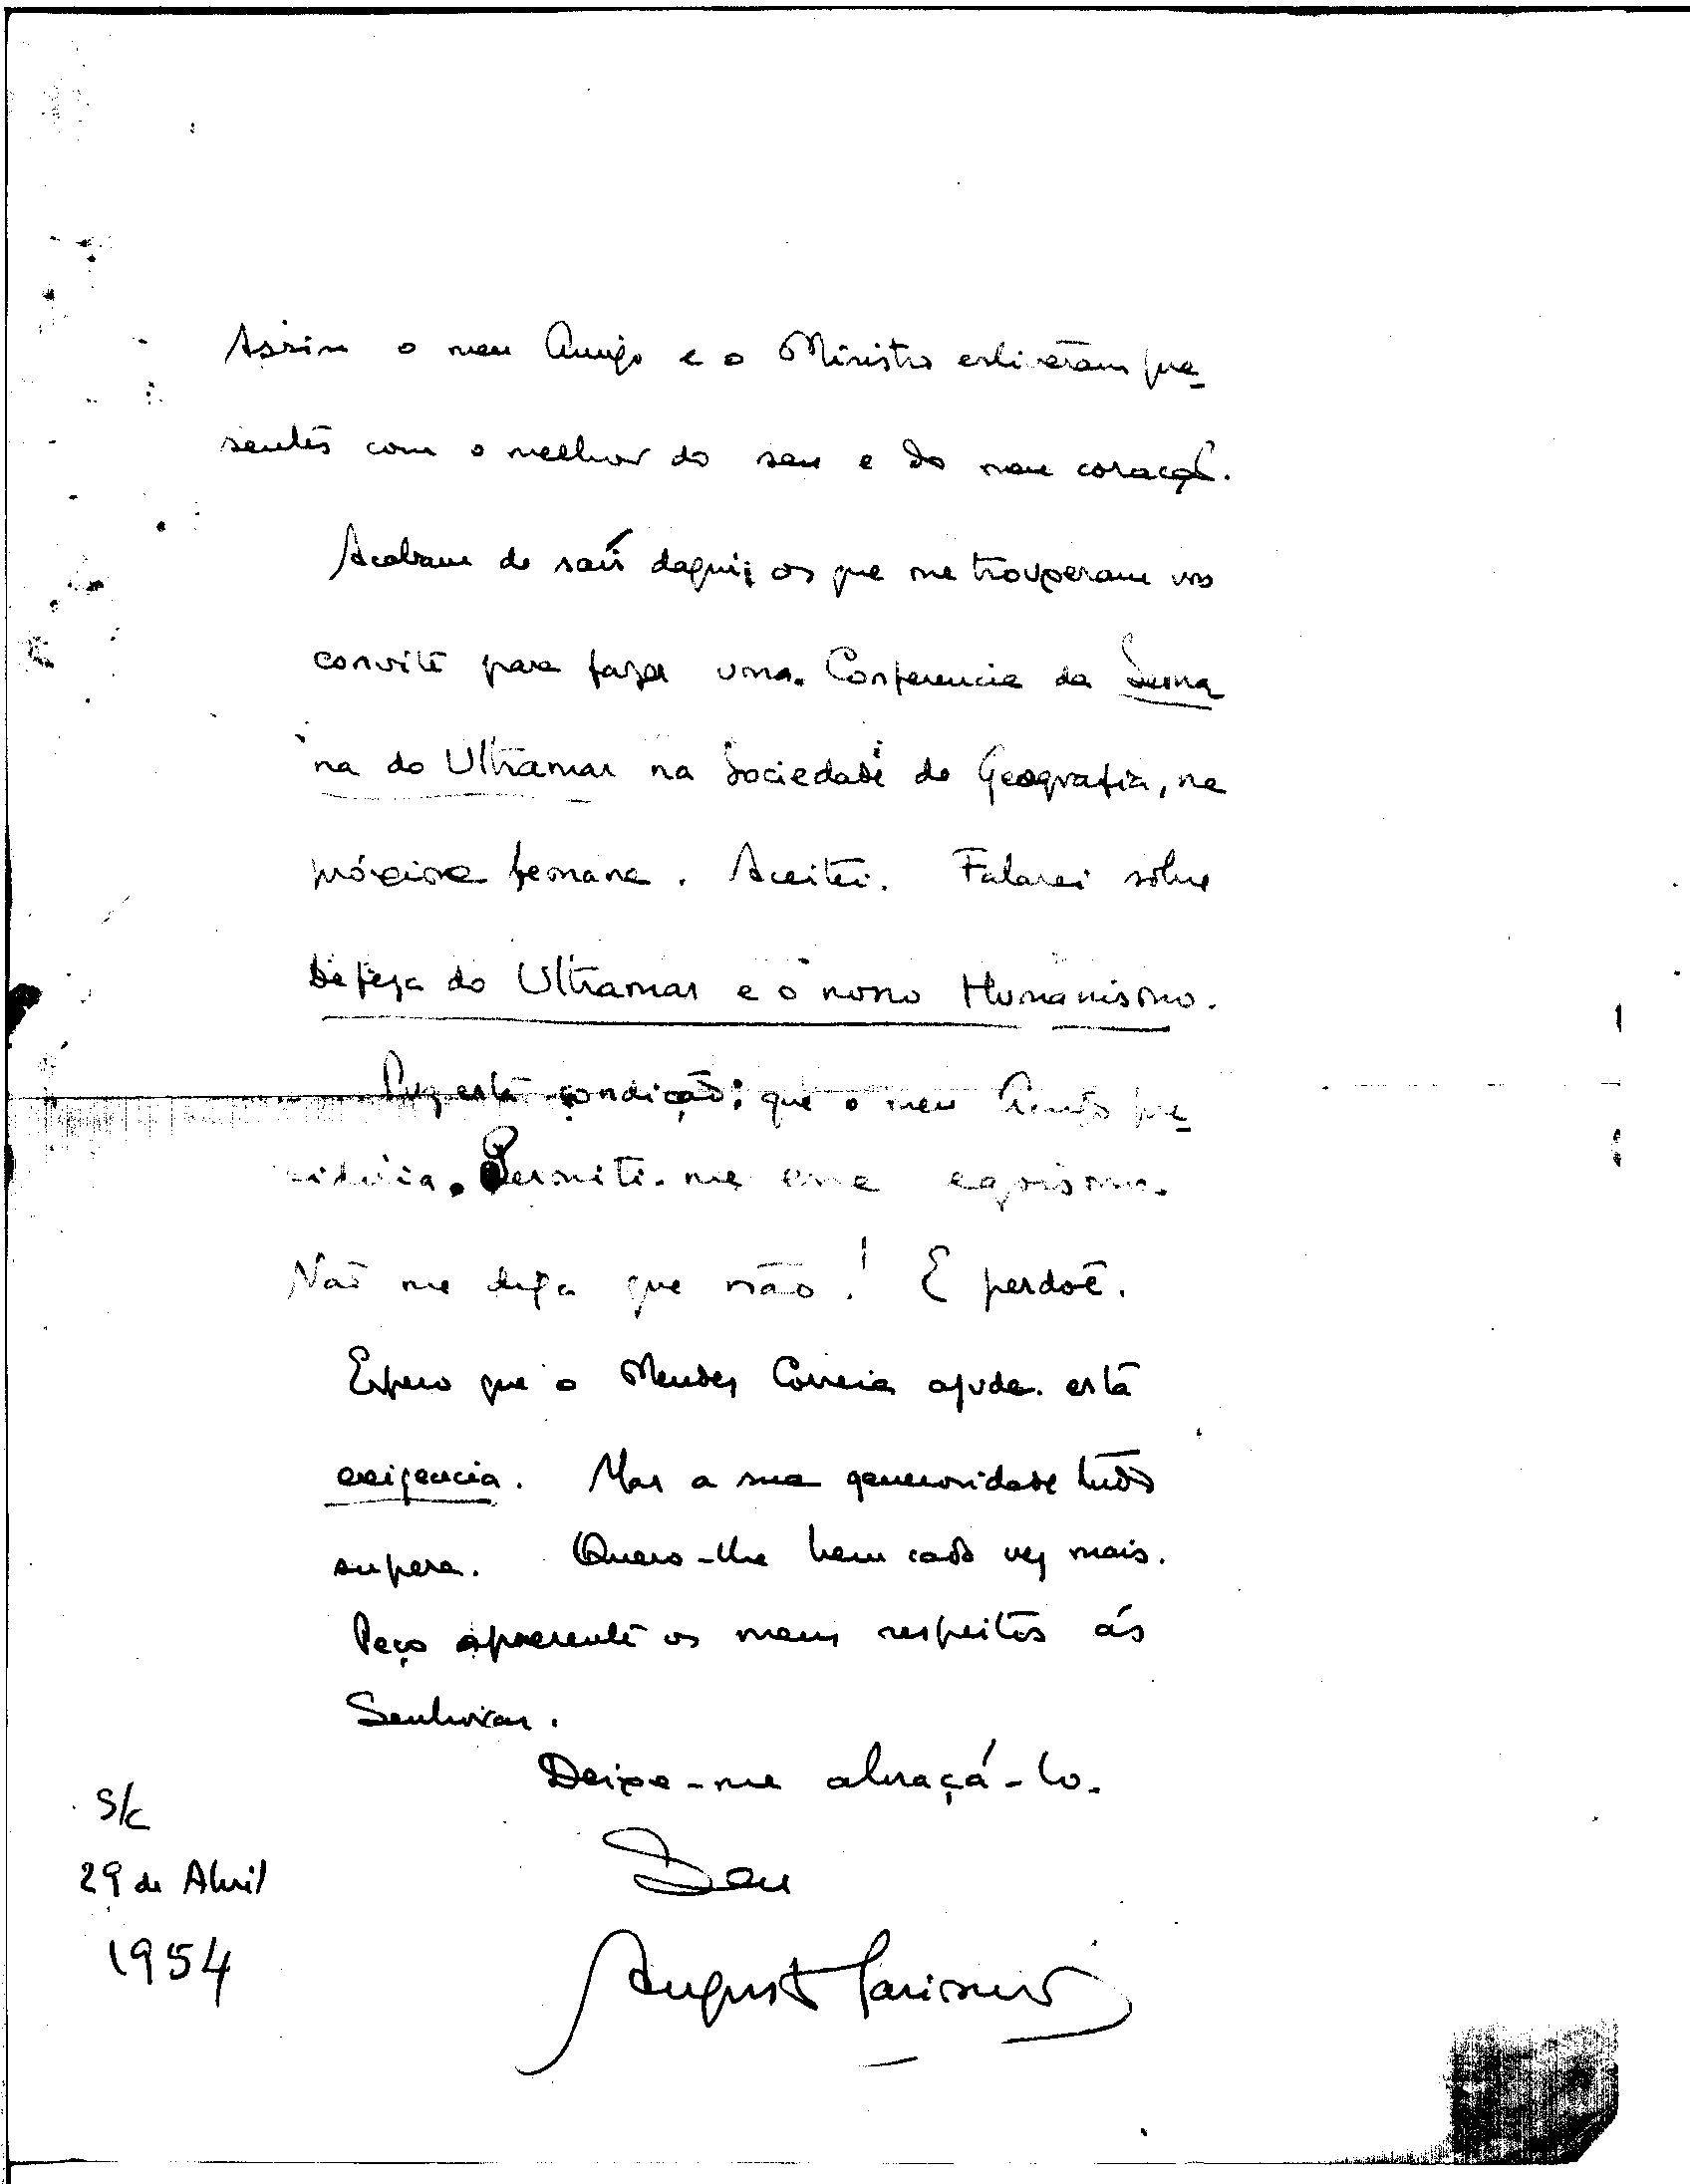 Assim o meu Amigo e o Ministro estiveram pre-
sentes com o melhor do seu e do meu coração.
Acabam de sair daqui os que me trouxeram um
convite para fazer uma Conferencia da Sema
na do Ultramar na Sociedade de Geografia, na
próxima semana. Aceitei. Falarei sôbre
Defeza do Ultramar e o nosso Humanismo.
Puz esta condição: que o meu Amigo pre-
sidiria. Permite-me esse egoismo.
Não me diga que não! E perdoe.
Espero que o Mendes Correia ajude esta
exigencia. Mas a sua generosidade tudo
supera. Quero-lhe bem cada vez mais.
Peço apresente os meus respeitos ás
Senhoras.
Deixe-me abraçá-lo.
S/c
29 de Abril
1954
Seu
Augusto